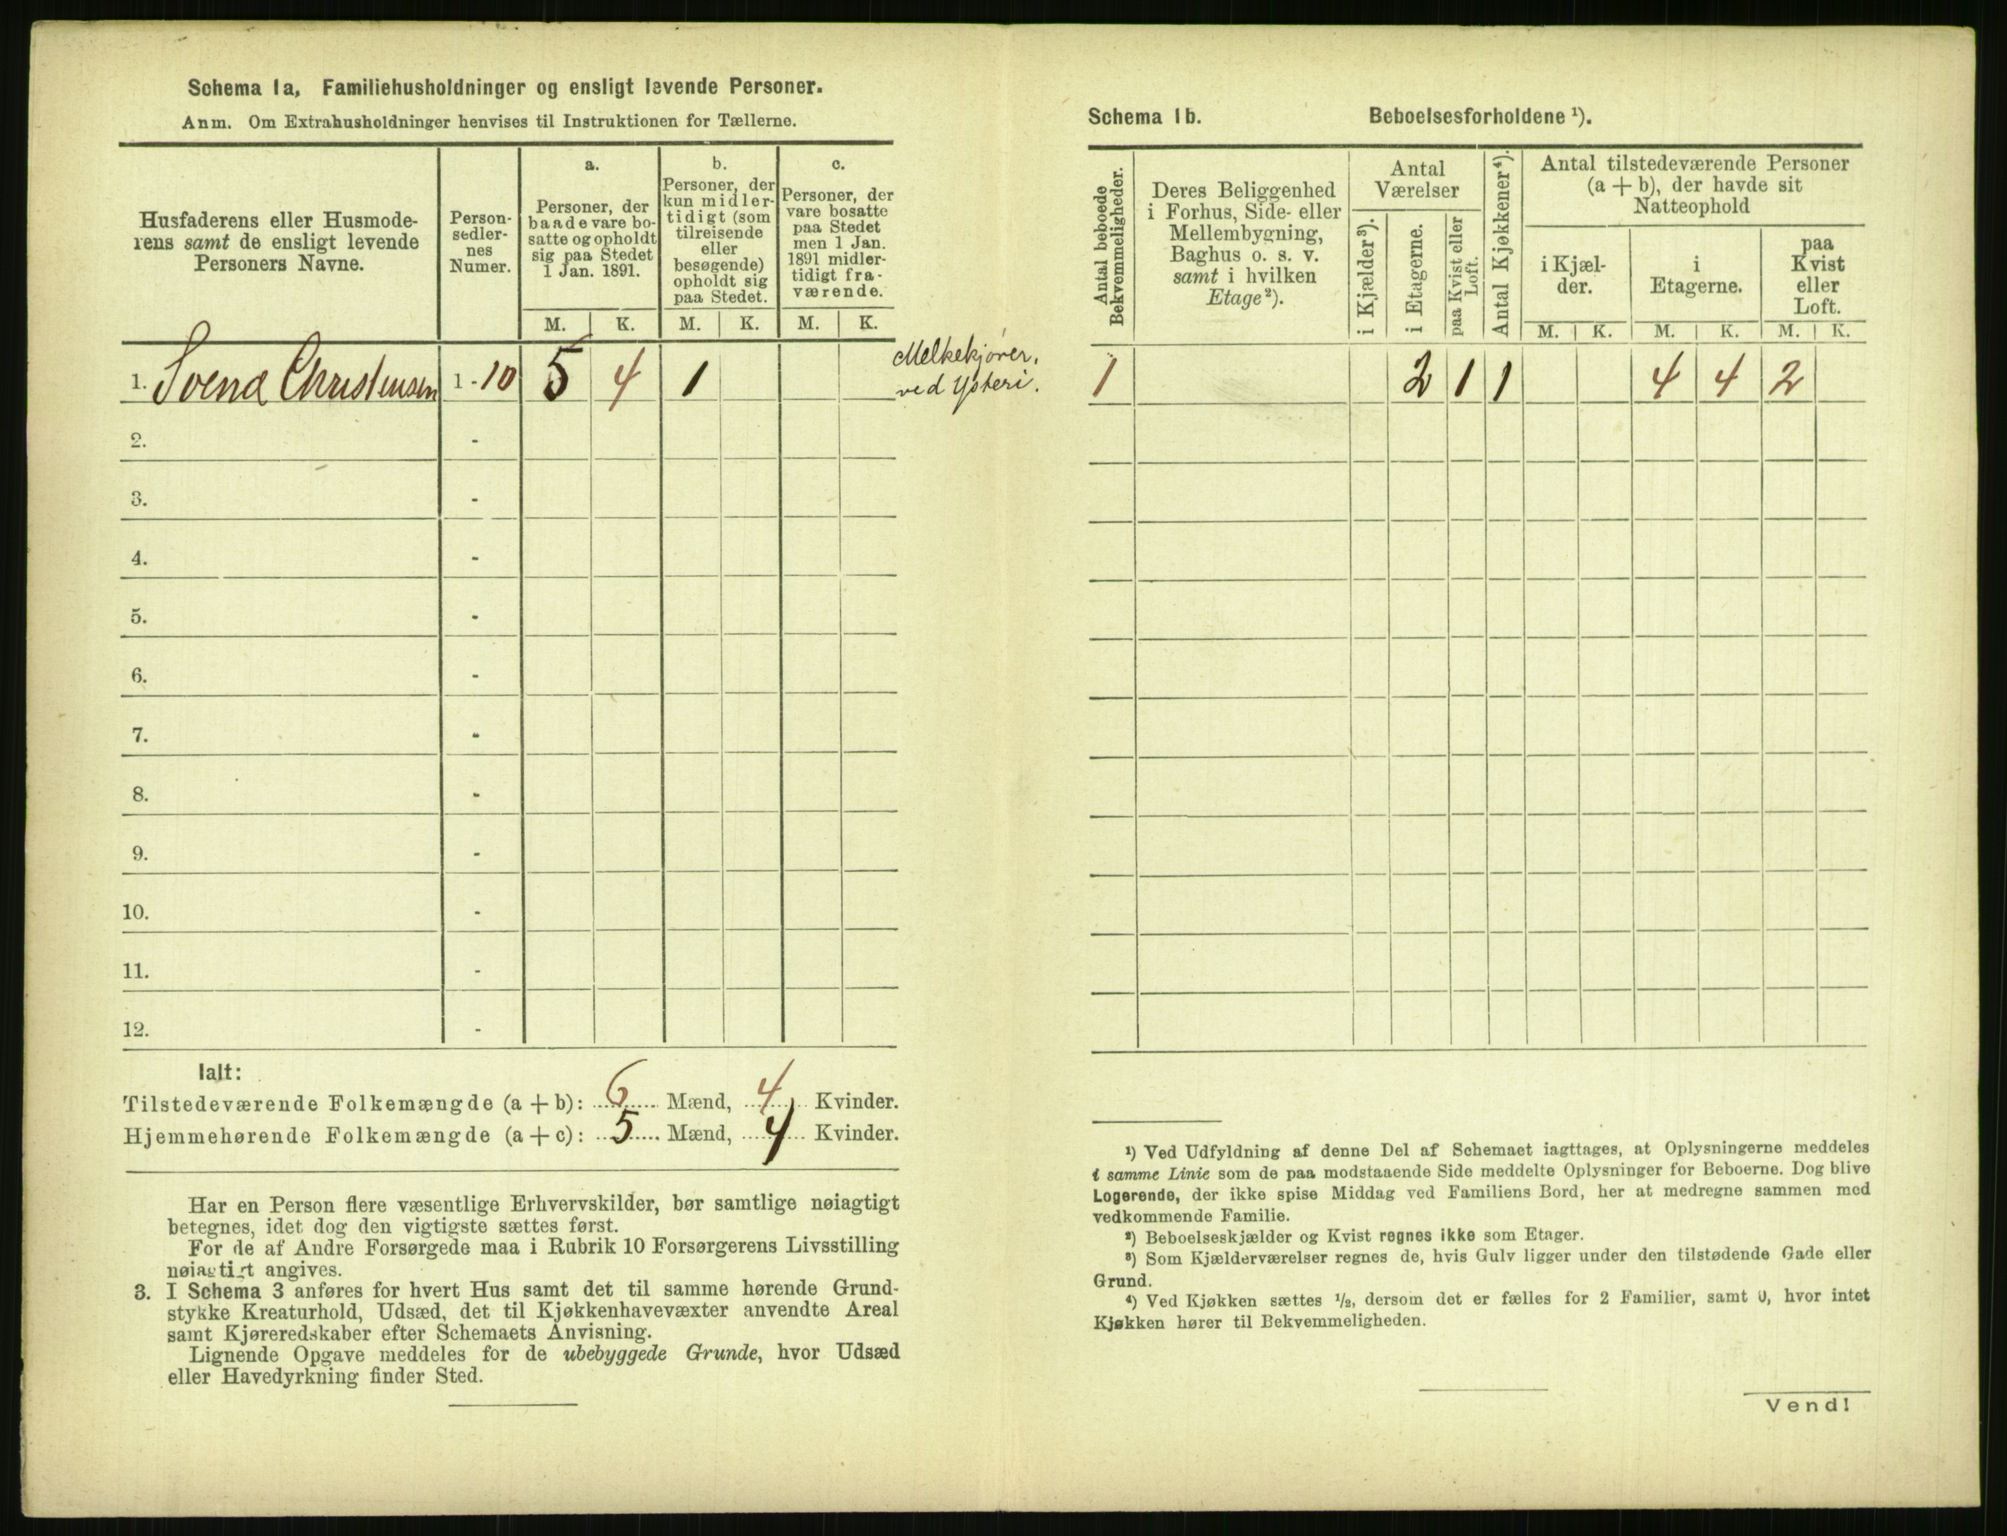 Schema 1a, Familiehusholdninger og ensligt levende Personer.
Anm. Om Extrahusholdninger henvises til Instruktionen for Tællerne.
Husfaderens eller Husmode-
rens samt de ensligt levende
Personers Navne.
Person-
sedler-
nes
Numer.
a.
Personer, der
baade vare bo-
satte og opholdt
sig paa Stedet
1 Jan. 1891.
b.
Personer, der
kun midler-
tidigt (som
tilreisende
eller
besøgende)
opholdt sig
paa Stedet.
c.
Personer, der
vare bosatte
paa Stedet
men 1 Jan.
1891 midler-
tidigt fra-
værende.
M. K. M. K. M. K.
1. Svend Christensen 1 - 10 5 4 1
Melkekjører,
ved Ysteri.
2. -
3. -
4. -
5. -
6. -
7. -
8. -
9. -
10. -
11. -
12. -
Ialt:
Tilstedeværende Folkemængde (a + b): 6 Mænd, 4 Kvinder.
Hjemmehørende Folkemængde (a + c): 5 Mænd, 4 Kvinder.
Har en Person flere væsentlige Erhvervskilder, bør samtlige nøiagtigt
betegnes, idet dog den vigtigste sættes først.
For de af Andre Forsørgede maa i Rubrik 10 Forsørgerens Livsstilling
nøiagtigt angives.
3. I Schema 3 anføres for hvert Hus samt det til samme hørende Grund-
stykke Kreaturhold, Udsæd, det til Kjøkkenhavevæxter anvendte Areal
samt Kjøreredskaber efter Schemaets Anvisning.
Lignende Opgave meddeles for de ubebyggede Grunde, hvor Udsæd
eller Havedyrkning finder Sted.
Schema 1b. Beboelsesforholdene ¹).
Antal beboede
Bekvemmeligheder.
Deres Beliggenhed
i Forhus, Side- eller
Mellembygning,
Baghus o. s. v.
samt i hvilken
Etage²).
Antal
Værelser
i Kjælder³).
i Etagerne.
paa Kvist eller
Loft.
Antal Kjøkkener⁴).
Antal tilstedeværende Personer
(a + b), der havde sit
Natteophold
i Kjæl-
der.
i
Etagerne.
paa
Kvist
eller
Loft.
M. K. M. K. M. K.
1 2 1 1 4 4 2
¹) Ved Udfyldning af denne Del af Schemaet iagttages, at Oplysningerne meddeles
i samme Linie som de paa modstaaende Side meddelte Oplysninger for Beboerne. Dog blive
Logerende, der ikke spise Middag ved Familiens Bord, her at medregne sammen med
vedkommende Familie.
²) Beboelseskjælder og Kvist regnes ikke som Etager.
³) Som Kjælderværelser regnes de, hvis Gulv ligger under den tilstødende Gade eller
Grund.
⁴) Ved Kjøkken sættes ¹/₂, dersom det er fælles for 2 Familier, samt 0, hvor intet
Kjøkken hører til Bekvemmeligheden.
Vend!